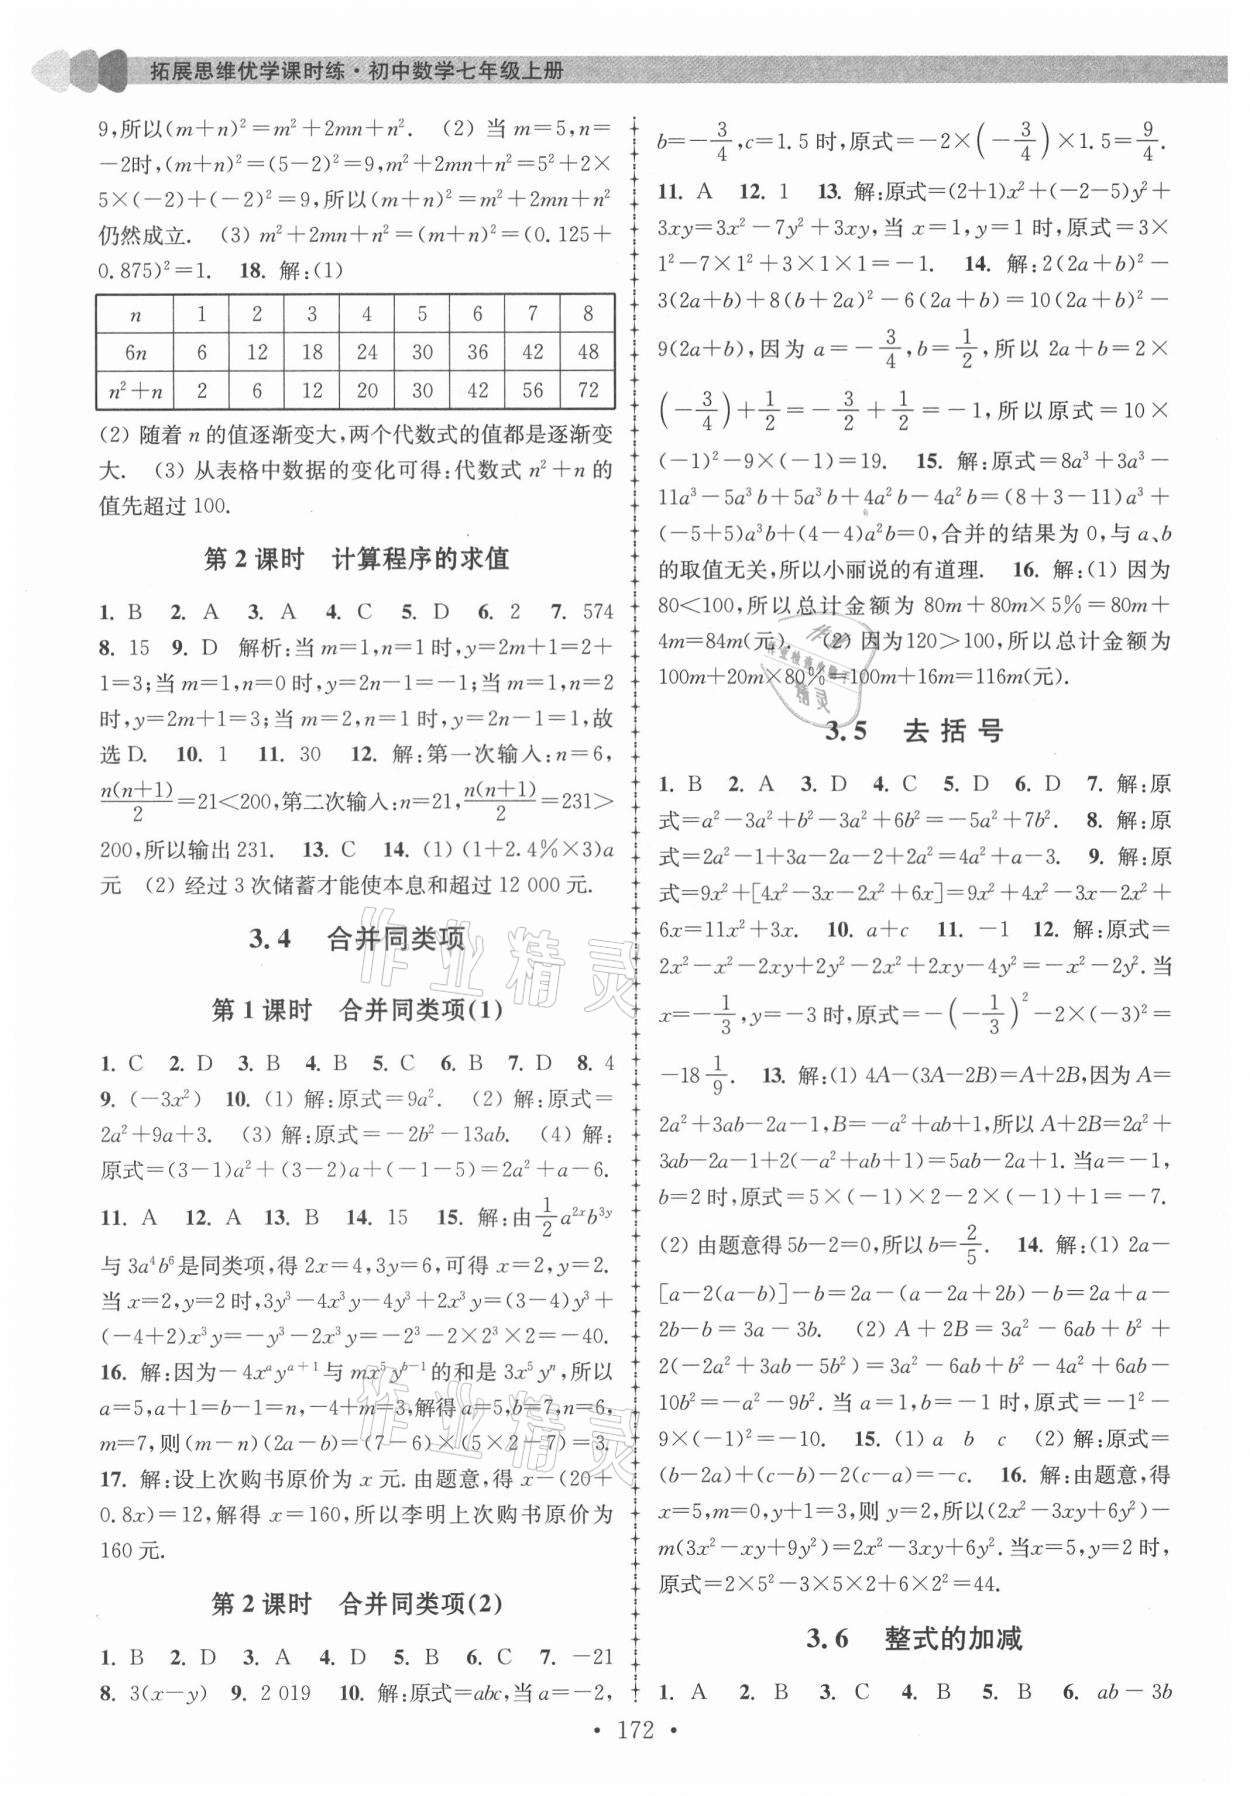 拓展思维优学课时练·初中数学七年级上册
9,所以(m+n)²=m²+2mn+n². (2) 当 m=5,n=
-2时,(m+n)²=(5-2)²=9,m²+2mn+n²=5²+2×
5×(-2)+(-2)²=9,所以(m+n)²=m²+2mn+n²
仍然成立. (3) m²+2mn+n²=(m+n)²=(0.125+
0.875)²=1. 18. 解:(1)
n 1 2 3 4 5 6 7 8
6n 6 12 18 24 30 36 42 48
n²+n 2 6 12 20 30 42 56 72
(2) 随着 n 的值逐渐变大,两个代数式的值都是逐渐变
大. (3) 从表格中数据的变化可得:代数式 n²+n 的
值先超过 100.
第 2 课时 计算程序的求值
1. B 2. A 3. A 4. C 5. D 6. 2 7. 574
8. 15 9. D 解析:当 m=1,n=1 时,y=2m+1=2+
1=3;当 m=1,n=0 时,y=2n-1=-1;当 m=1,n=2
时,y=2m+1=3;当 m=2,n=1 时,y=2n-1=1,故
选 D. 10. 1 11. 30 12. 解:第一次输入:n=6,
n(n+1)/2=21<200,第二次输入:n=21,n(n+1)/2=231>
200,所以输出 231. 13. C 14. (1) (1+2.4%×3)a
元 (2) 经过 3 次储蓄才能使本息和超过 12 000 元.
3.4 合并同类项
第 1 课时 合并同类项(1)
1. C 2. D 3. B 4. B 5. C 6. B 7. D 8. 4
9. (-3x²) 10. (1) 解:原式=9a². (2) 解:原式=
2a²+9a+3. (3) 解:原式=-2b²-13ab. (4) 解:
原式=(3-1)a²+(3-2)a+(-1-5)=2a²+a-6.
11. A 12. A 13. B 14. 15 15. 解:由1/2a²ˣb³ʸ
与 3a⁴b⁶是同类项,得 2x=4,3y=6,可得 x=2,y=2.
当 x=2,y=2 时,3y³-4x³y-4y³+2x³y=(3-4)y³+
(-4+2)x³y=-y³-2x³y=-2³-2×2³×2=-40.
16. 解:因为-4xᵃyᵃ⁺¹与 mx⁵yᵇ⁻¹的和是 3x⁵yⁿ,所以
a=5,a+1=b-1=n,-4+m=3,解得a=5,b=7,n=6,
m=7,则(m-n)(2a-b)=(7-6)×(5×2-7)=3.
17. 解:设上次购书原价为 x 元.由题意,得 x-(20+
0.8x)=12,解得 x=160,所以李明上次购书原价为
160 元.
第 2 课时 合并同类项(2)
1. B 2. D 3. A 4. D 5. B 6. C 7. -21
8. 3(x-y) 9. 2 019 10. 解:原式=abc,当 a=-2,
b=-3/4,c=1.5 时,原式=-2×(-3/4)×1.5=9/4.
11. A 12. 1 13. 解:原式=(2+1)x²+(-2-5)y²+
3xy=3x²-7y²+3xy,当 x=1,y=1 时,原式=3×
1²-7×1²+3×1×1=-1. 14. 解:2(2a+b)²-
3(2a+b)+8(b+2a)²-6(2a+b)=10(2a+b)²-
9(2a+b),因为 a=-3/4,b=1/2,所以 2a+b=2×
(-3/4)+1/2=-3/2+1/2=-1,所以原式=10×
(-1)²-9×(-1)=19. 15. 解:原式=8a³+3a³-
11a³-5a³b+5a³b+4a²b-4a²b=(8+3-11)a³+
(-5+5)a³b+(4-4)a²b=0,合并的结果为 0,与 a、b
的取值无关,所以小丽说的有道理. 16. 解:(1) 因为
80<100,所以总计金额为 80m+80m×5%=80m+
4m=84m(元). (2) 因为120>100,所以总计金额为
100m+20m×80%=100m+16m=116m(元).
3.5 去括号
1. B 2. A 3. D 4. C 5. D 6. D 7. 解:原
式=a²-3a²+b²-3a²+6b²=-5a²+7b². 8. 解:原
式=2a²-1+3a-2a-2+2a²=4a²+a-3. 9. 解:原
式=9x²+[4x²-3x-2x²+6x]=9x²+4x²-3x-2x²+
6x=11x²+3x. 10. a+c 11. -1 12. 解:原式=
2x²-x²-2xy+2y²-2x²+2xy-4y²=-x²-2y².当
x=-1/3,y=-3 时,原式=-(-1/3)²-2×(-3)²=
-18 1/9. 13. 解:(1) 4A-(3A-2B)=A+2B,因为A=
2a²+3ab-2a-1,B=-a²+ab+1,所以 A+2B=2a²+
3ab-2a-1+2(-a²+ab+1)=5ab-2a+1.当a=-1,
b=2 时,原式=5×(-1)×2-2×(-1)+1=-7.
(2) 由题意得 5b-2=0,所以 b=2/5. 14. 解:(1) 2a-
[a-2(a-b)]-b=2a-(a-2a+2b)-b=2a+a-
2b-b=3a-3b. (2) A+2B=3a²-6ab+b²+
2(-2a²+3ab-5b²)=3a²-6ab+b²-4a²+6ab-
10b²=-a²-9b².当 a=1,b=-1 时,原式=-1²-
9×(-1)²=-10. 15. (1) a b c (2) 解:原式=
(b-2a)+(c-b)-2(c-a)=-c. 16. 解:由题意,得
x=5,m=0,y+1=3,则 y=2,所以(2x²-3xy+6y²)-
m(3x²-xy+9y²)=2x²-3xy+6y².当x=5,y=2 时,
原式=2×5²-3×5×2+6×2²=44.
3.6 整式的加减
1. A 2. B 3. C 4. B 5. B 6. ab-3b
·172·
作业精灵
作业精灵